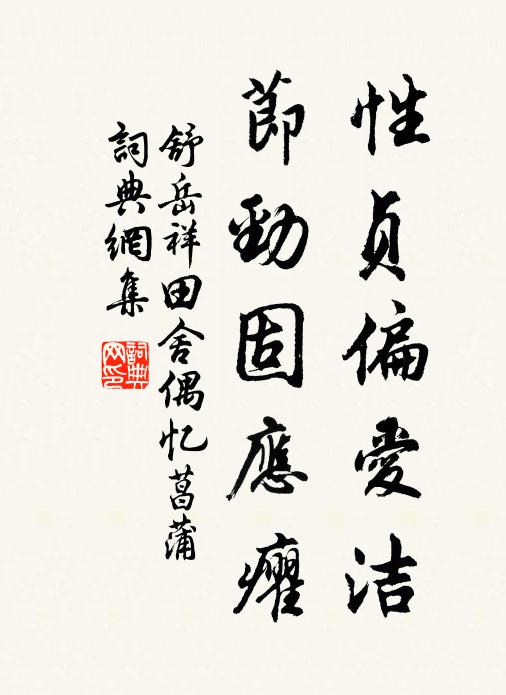 性貞偏愛洁
節勁固應癯
舒岳祥田舍偶忆菖蒲
詞典網集
詞典
网印